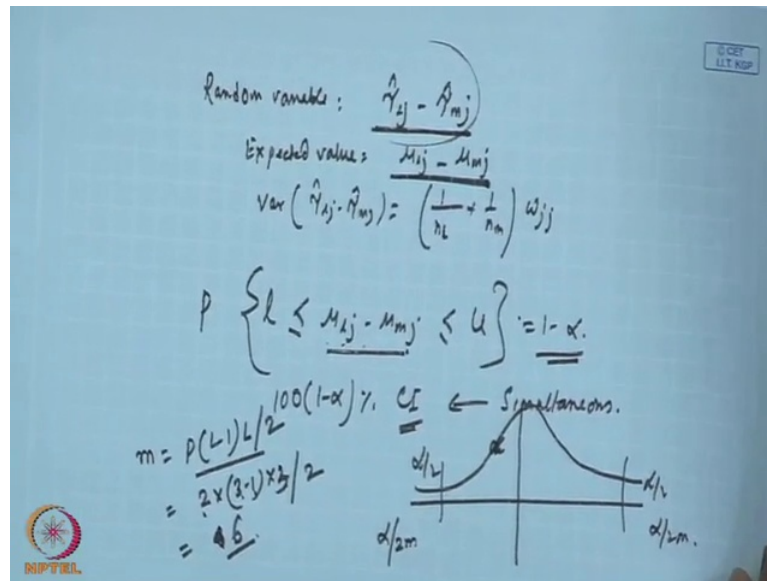 © CET
I.I.T. KGP
Random variable: τ̂_lj - τ̂_mj
Expected value = μ_lj - μ_mj
Var (τ̂_lj - τ̂_mj) = (1/n_l + 1/n_m) ω_jj
P { l ≤ μ_lj - μ_mj ≤ u } = 1 - α.
100(1-α)%. CI ← Simultaneous.
m = P(L-1)L/2
= 2×(3-1)×3/2
= 6
α/2 α/2
α/2m α/2m.
NPTEL